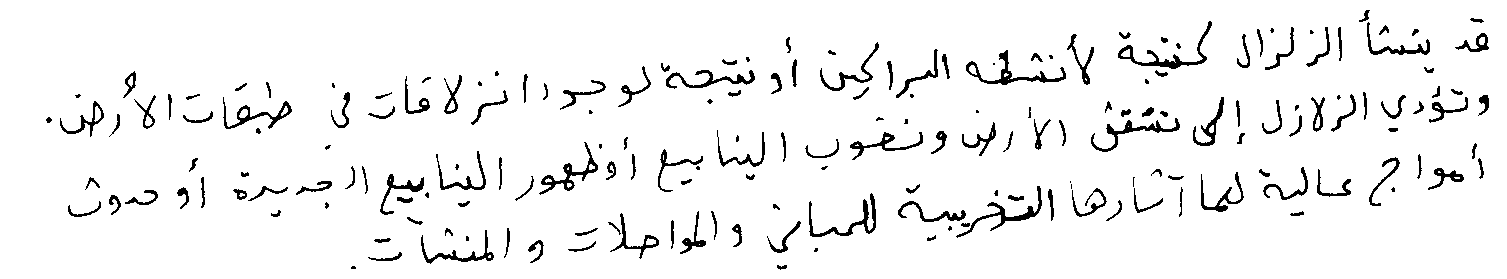 قد ينشأ الزلزال كنتيجة لأنشطه البراكين أو نتيجة لوجود انزلاقات في طبقات الأرض.
وتؤدي الزلازل إلى تشقق الأرض ونضوب الينابيع أو ظهور الينابيع الجديدة أو حدوث
أمواج عالية لها آثارها التخريبية للمباني والمواصلات والمنشآت.